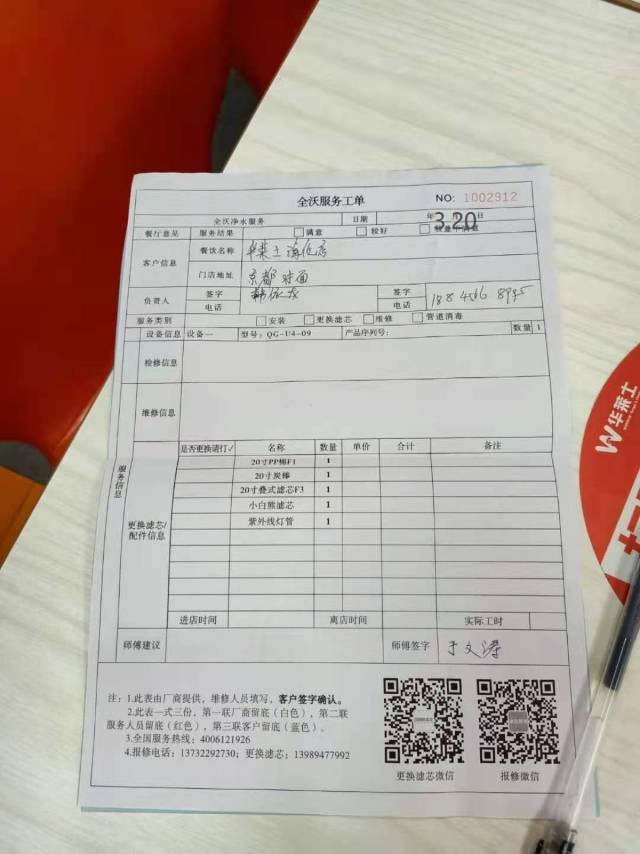 全沃服务工单
NO: 1002912
全沃净水服务 日期 年 3.20 日
餐厅意见 服务结果 满意 较好
客户信息 餐饮名称 华莱士
门店地址 京都对面
负责人 签字 签字
电话 电话
服务类别 安装 更换滤芯 维修 管道消毒
设备信息 设备一 型号：QG-U4-09 产品序列号： 数量 1
检修信息
维修信息
服务信息
是否更换请打√ 名称 数量 单价 合计 备注
20寸PP棉F1 1
20寸炭棒 1
20寸叠式滤芯F3 1
小白熊滤芯 1
紫外线灯管 1
更换滤芯/
配件信息
进店时间 离店时间 实际工时
师傅建议 师傅签字 于文涛
注：1.此表由厂商提供，维修人员填写，客户签字确认。
2.此表一式三份，第一联厂商留底（白色），第二联
服务人员留底（红色），第三联客户留底（蓝色）。
3.全国服务热线：4006121926
4.报修电话：13732292730；更换滤芯：13989477992
更换滤芯微信 报修微信
华莱士